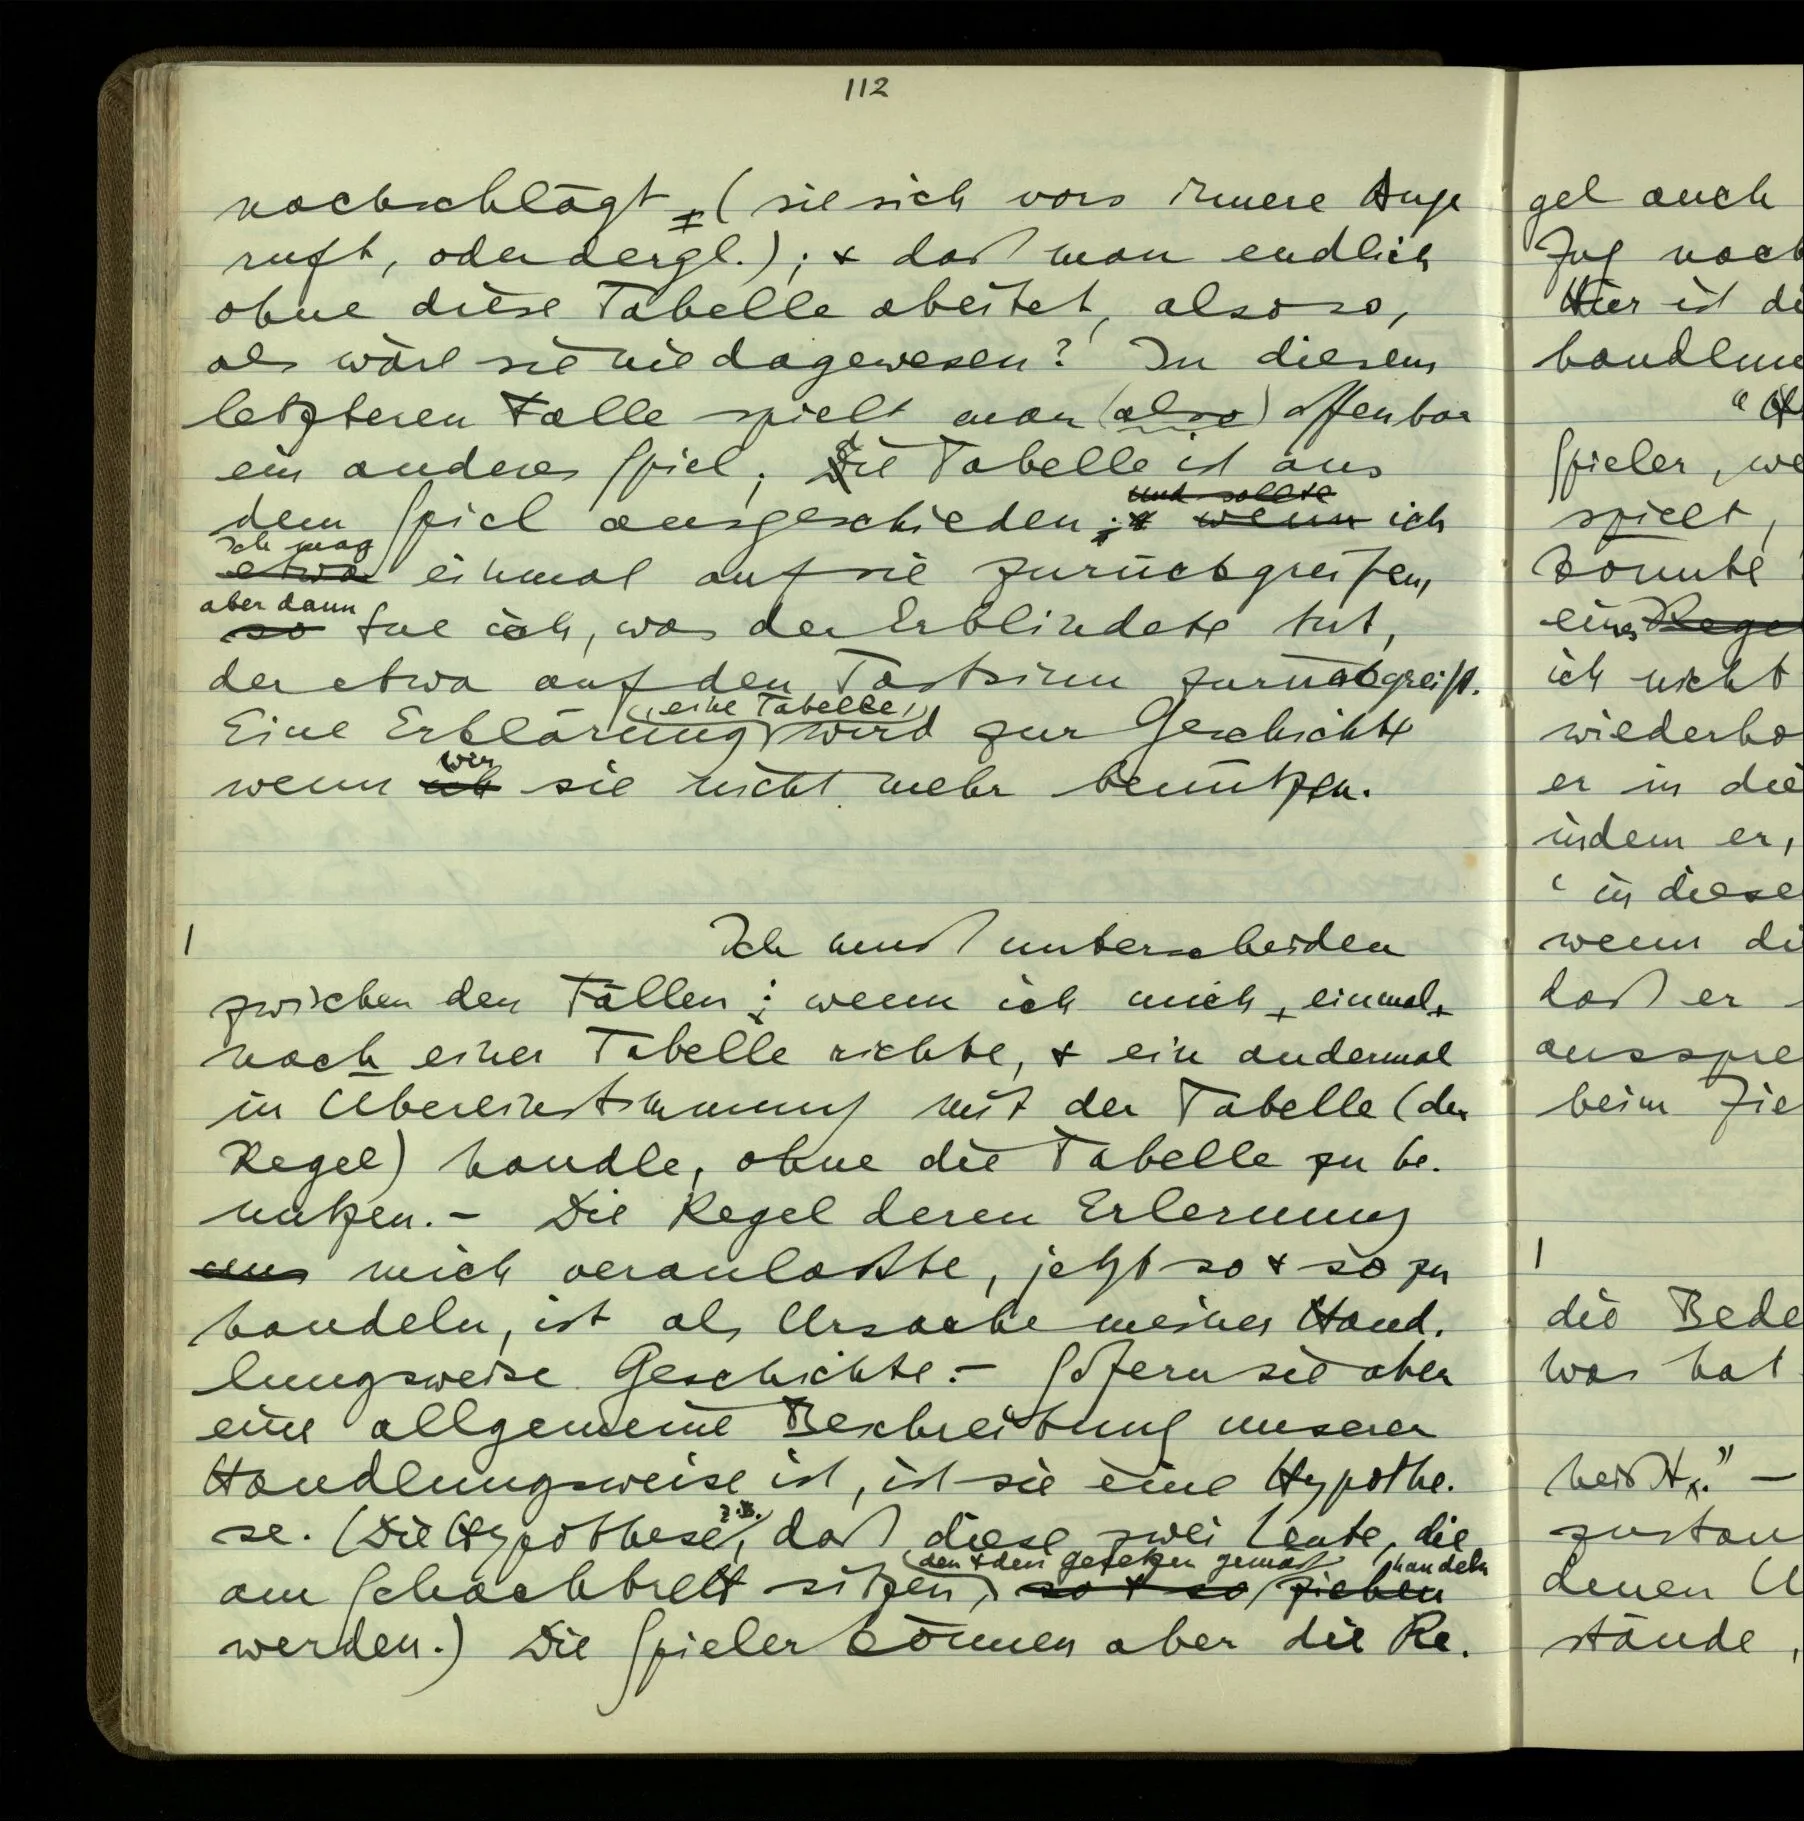 112
nachschlägt (sie sich vors innere Auge
ruft, oder dergl.); & daß man endlich
ohne diese Tabelle abeitet, also so,
als wäre sie nie dagewesen? In diesem
letzteren Falle spielt man (also) offenbar
ein anderes Spiel. Die Tabelle ist aus
und sollte
dem Spiel ausgeschieden; & wenn ich
ich mag
etwa einmal auf sie zurückgreifen,
aber dann
so tue ich, was der Erblindete tut,
der etwa auf den Tastsinn zurückgreift.
, eine Tabelle,
Eine Erklärung wird zur Geschichte
wir
wenn ich sie nicht mehr benützen.
I
Ich muß unterscheiden
zwischen den Fällen: wenn ich mich, einmal,
nach einer Tabelle richte, & ein andermal
in Übereinstimmung mit der Tabelle (der
Regel) handle, ohne die Tabelle zu be-
nutzen. – Die Regel deren Erlernung
uns mich veranlaßte, jetzt so & so zu
handeln, ist als Ursache meiner Hand-
lungsweise Geschichte. – Sofern sie aber
eine allgemeine Beschreibung unserer
Handlungsweise ist, ist sie eine Hypothe-
z.B.,
se. (Die Hypothese, daß diese zwei Leute, die
den & den Gesetzen gemäß handeln
am Schachbrett sitzen, so & so ziehen
werden.) Die Spieler können aber die Re-
gel auch
Zug nach
Hier ist di
handlun
Spieler, we
spielt,
könnte
eines Regel
ich nicht
wiederho
er in die
indem er,
' in diese
wenn di
daß er –
ausspre
beim Zie
I
die Bede
was hat
heißt." –
zustan
denen U
stände,